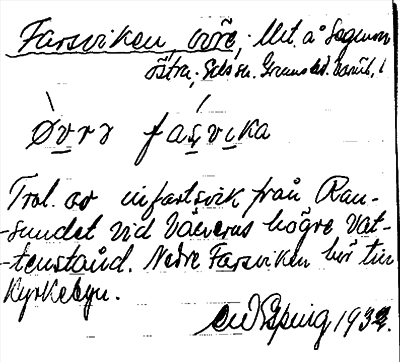 Farsviken, övre; Met. å Segmon
östra, Eds sn. Grums hd. Värml. l
Øvrɘ fasvika
Trol. av infartsvik från Ran-
-sundet vid Vänerns högre Vat-
-tenstånd. Nedre Farsviken hör till
Kyrkebyn.
1933.